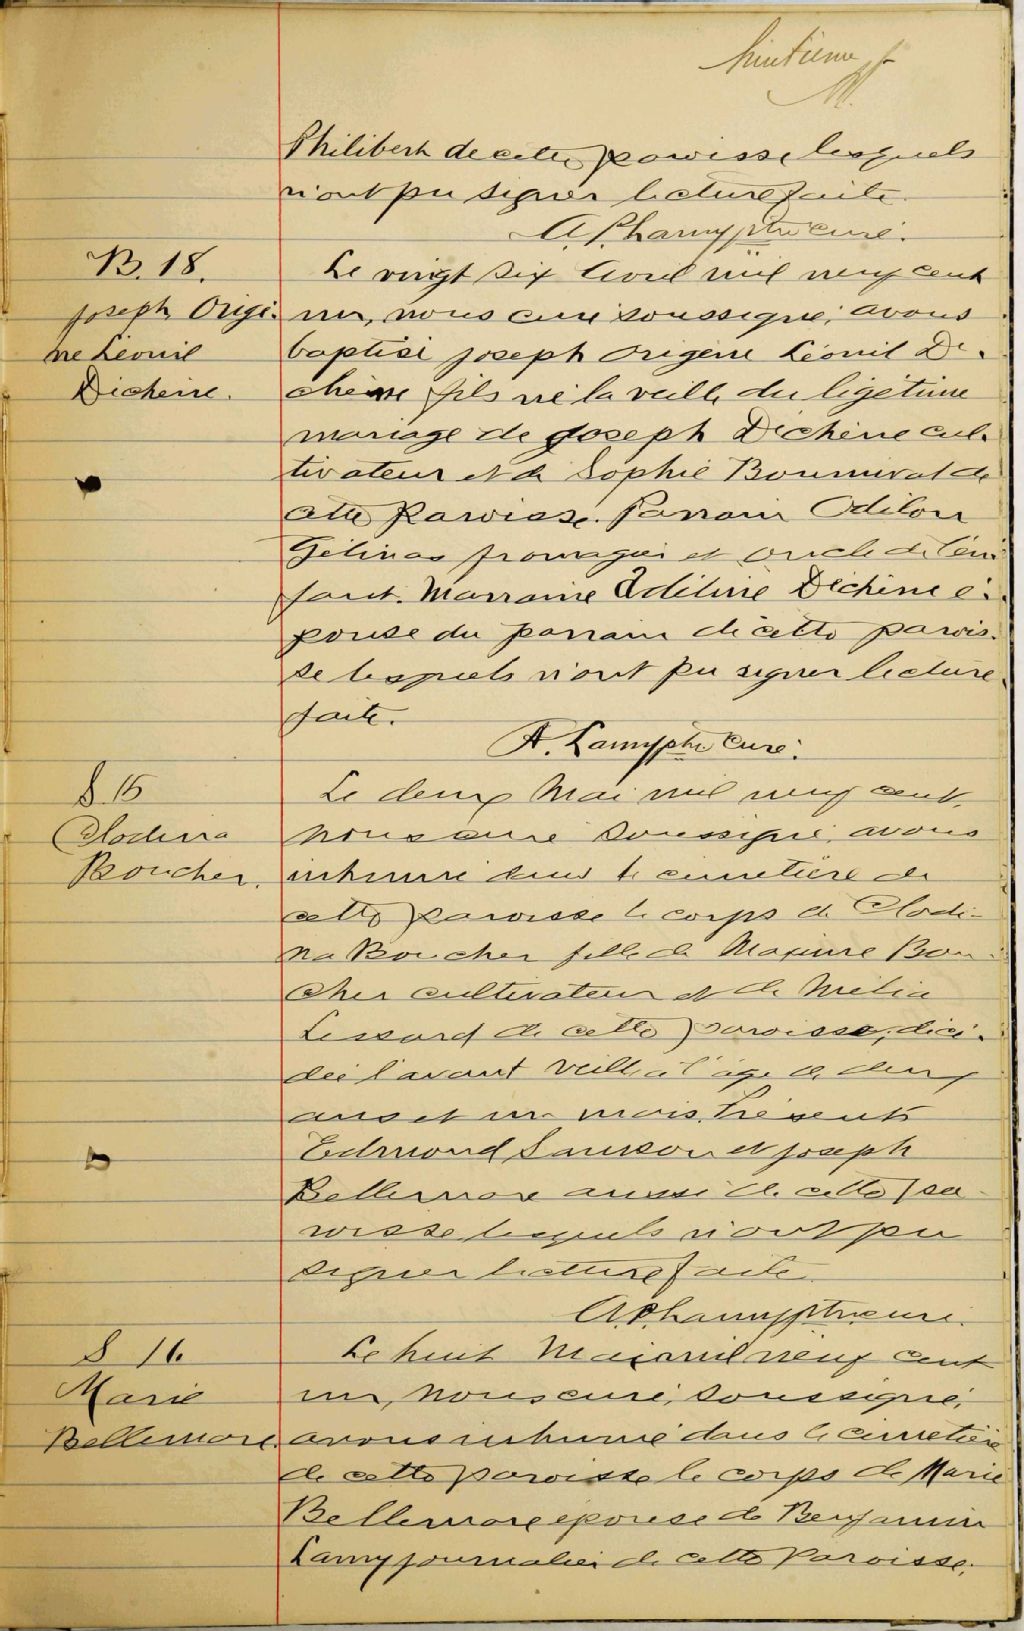 huitième
Philibert de cette paroisse lesquels
n'ont pu signer lecture faite.
A. Lamy ptre curé.
B. 18.
Joseph Origè-
ne Léonil
Dechène.
Le vingt six Avril mil neuf cent
un, nous curé soussigné, avons
baptisé Joseph Origène Léonil De-
chène fils né la veille du légitime
mariage de Joseph Dechène cul-
tivateur et de Sophie Bournival de
cette Paroisse. Parrain Odilon
Gélinas fromager et oncle de l'en-
fant. Marraine Adéline Dechène é-
pouse du parrain de cette parois-
se lesquels n'ont pu signer lecture
faite.
A. Lamy ptre Curé.
S. 15
Clodina
Boucher.
Le deux Mai mil neuf cent,
nous curé soussigné avons
inhumé dans le cimetière de
cette paroisse le corps de Clodi-
na Boucher fille de Maxime Bou-
cher cultivateur et de Mélia
Lessard de cette paroisse, décé-
dée l'avant veille à l'âge de deux
ans et un mois. Présents
Edmond Samson et Joseph
Bellemare aussi de cette pa-
roisse lesquels n'ont pu
signer lecture faite.
A. Lamy ptre curé.
S 16.
Marie
Bellemare.
Le huit Mai mil neuf cent
un, nous curé, soussigné,
avons inhumé dans le cimetière
de cette paroisse le corps de Marie
Bellemare épouse de Benjamin
Lamy journalier de cette Paroisse,